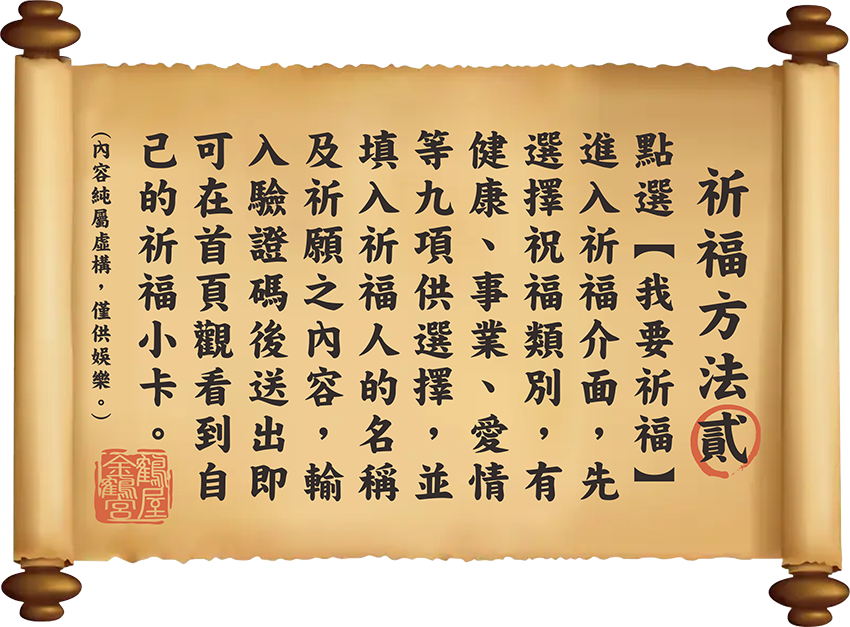 祈福方法貳
點選【我要祈福】
進入祈福介面，先
選擇祝福類別，有
健康、事業、愛情
等九項供選擇，並
填入祈福人的名稱
及祈願之內容，輸
入驗證碼後送出即
可在首頁觀看到自
己的祈福小卡。
（內容純屬虛構，僅供娛樂。）
鶴屋
金鶴宮